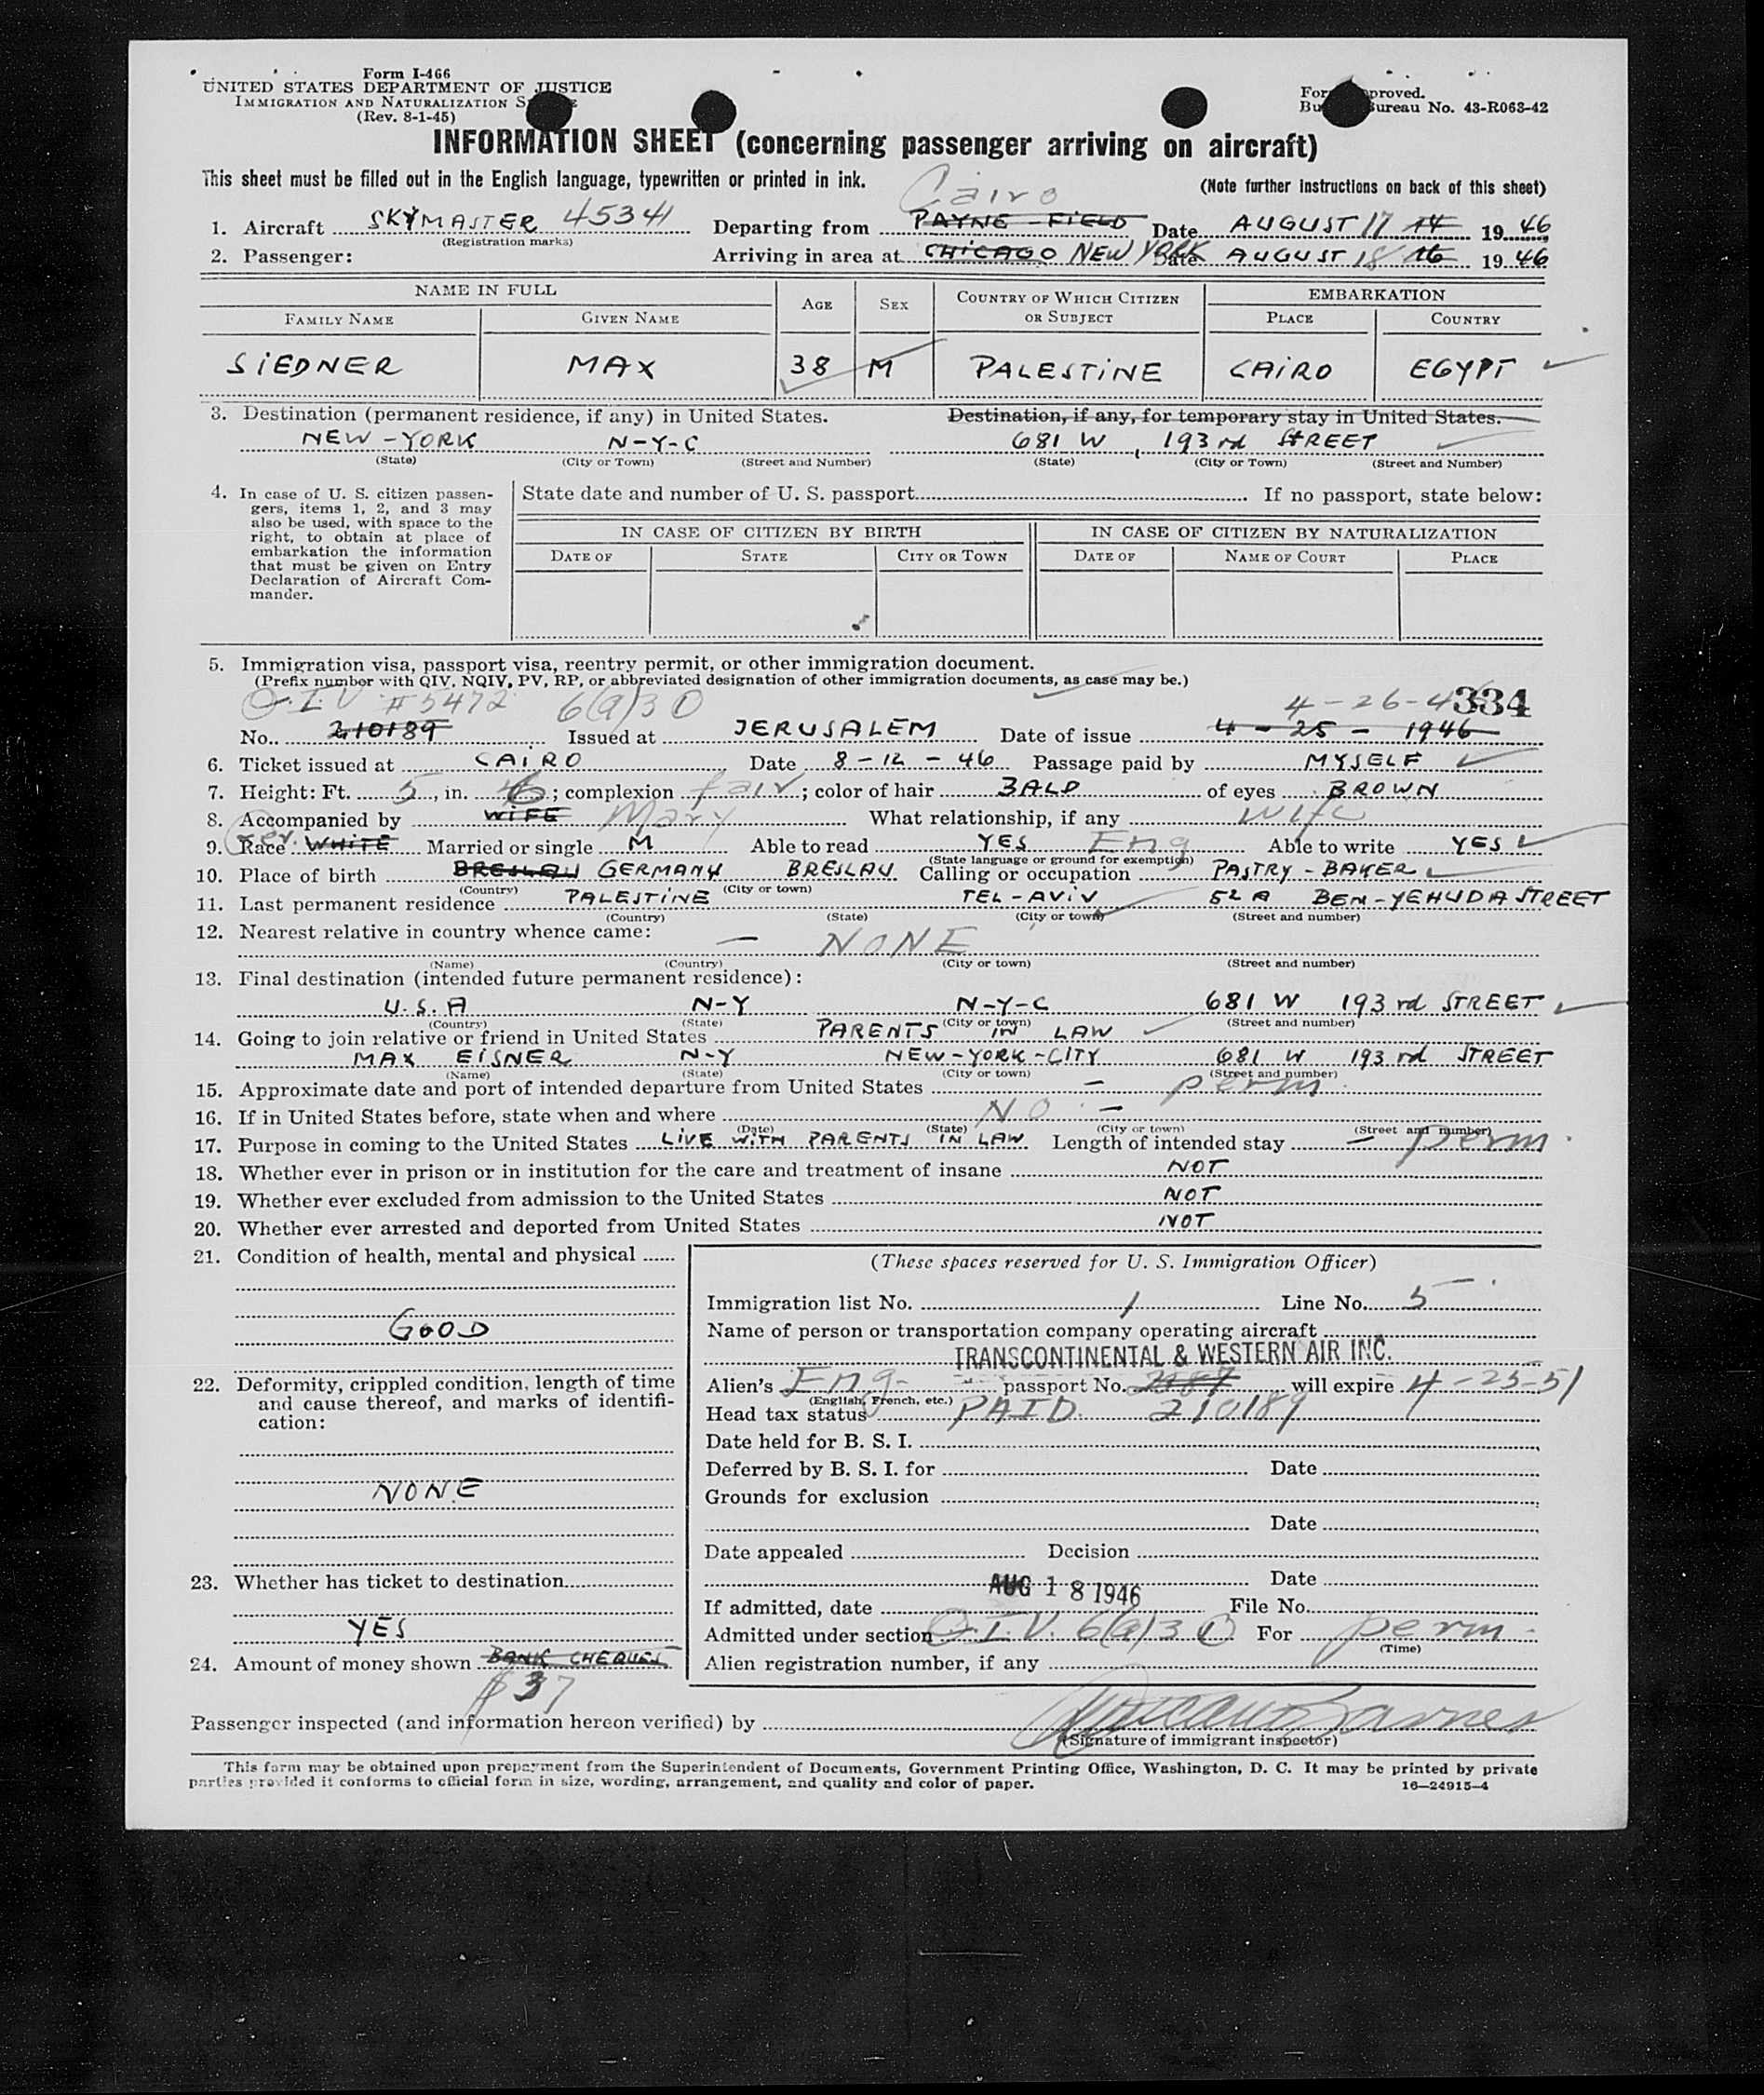 Form I-466
UNITED STATES DEPARTMENT OF JUSTICE
IMMIGRATION AND NATURALIZATION S E
(Rev. 8-1-45)
For pproved.
Bu ureau No. 43-R063-42
INFORMATION SHEET (concerning passenger arriving on aircraft)
This sheet must be filled out in the English language, typewritten or printed in ink.
(Note further instructions on back of this sheet)
Cairo
1. Aircraft SKYMASTER 45341 Departing from PAYNE-FIELD Date AUGUST 17 14 19 46
(Registration marks)
2. Passenger: Arriving in area at CHICAGO NEW YORK Date AUGUST 18 16 19 46
NAME IN FULL AGE SEX COUNTRY OF WHICH CITIZEN OR SUBJECT EMBARKATION
FAMILY NAME GIVEN NAME PLACE COUNTRY
SIEDNER MAX 38 M PALESTINE CAIRO EGYPT
3. Destination (permanent residence, if any) in United States. Destination, if any, for temporary stay in United States.
NEW-YORK N-Y-C 681 W 193rd STREET
(State) (City or Town) (Street and Number) (State) (City or Town) (Street and Number)
4. In case of U. S. citizen passen-
gers, items 1, 2, and 3 may
also be used, with space to the
right, to obtain at place of
embarkation the information
that must be given on Entry
Declaration of Aircraft Com-
mander.
State date and number of U. S. passport If no passport, state below:
IN CASE OF CITIZEN BY BIRTH IN CASE OF CITIZEN BY NATURALIZATION
DATE OF STATE CITY OR TOWN DATE OF NAME OF COURT PLACE
5. Immigration visa, passport visa, reentry permit, or other immigration document.
(Prefix number with QIV, NQIV, PV, RP, or abbreviated designation of other immigration documents, as case may be.)
Q.I.V #5472 6(a)3 Q 4-26-46 334
No. 210189 Issued at JERUSALEM Date of issue 4-25-1946
6. Ticket issued at CAIRO Date 8-12-46 Passage paid by MYSELF
7. Height: Ft. 5, in. 6; complexion fair; color of hair BALD of eyes BROWN
8. Accompanied by WIFE Mary What relationship, if any Wife
9. Race Ger. WHITE Married or single M Able to read YES Eng Able to write YES
(State language or ground for exemption)
10. Place of birth BRESLAU GERMANY BRESLAU Calling or occupation PASTRY-BAKER
(Country) (City or town)
11. Last permanent residence PALESTINE TEL-AVIV 52A BEN-YEHUDA STREET
(Country) (State) (City or town) (Street and number)
12. Nearest relative in country whence came: — NONE
(Name) (Country) (City or town) (Street and number)
13. Final destination (intended future permanent residence):
U.S.A N-Y N-Y-C 681 W 193rd STREET
(Country) (State) (City or town) (Street and number)
14. Going to join relative or friend in United States PARENTS IN LAW
MAX EISNER N-Y NEW-YORK-CITY 681 W 193rd STREET
(Name) (State) (City or town) (Street and number)
15. Approximate date and port of intended departure from United States — perm
16. If in United States before, state when and where NO —
(Date) (State) (City or town) (Street and number)
17. Purpose in coming to the United States LIVE WITH PARENTS IN LAW Length of intended stay — perm.
18. Whether ever in prison or in institution for the care and treatment of insane NOT
19. Whether ever excluded from admission to the United States NOT
20. Whether ever arrested and deported from United States NOT
21. Condition of health, mental and physical
GOOD
22. Deformity, crippled condition, length of time
and cause thereof, and marks of identifi-
cation:
NONE
23. Whether has ticket to destination
YES
24. Amount of money shown BANK CHEQUES
$37
(These spaces reserved for U. S. Immigration Officer)
Immigration list No. 1 Line No. 5
Name of person or transportation company operating aircraft
TRANSCONTINENTAL & WESTERN AIR INC.
Alien's Eng. passport No. 2187 will expire 4-23-51
(English, French, etc.)
Head tax status PAID. 210189
Date held for B. S. I.
Deferred by B. S. I. for Date
Grounds for exclusion
Date
Date appealed Decision
Date
AUG 18 1946
If admitted, date File No.
Admitted under section Q.I.V. 6(a)3 Q For perm.
(Time)
Alien registration number, if any
Passenger inspected (and information hereon verified) by
(Signature of immigrant inspector)
This form may be obtained upon prepayment from the Superintendent of Documents, Government Printing Office, Washington, D. C. It may be printed by private
parties provided it conforms to official form in size, wording, arrangement, and quality and color of paper.
16—24915-4